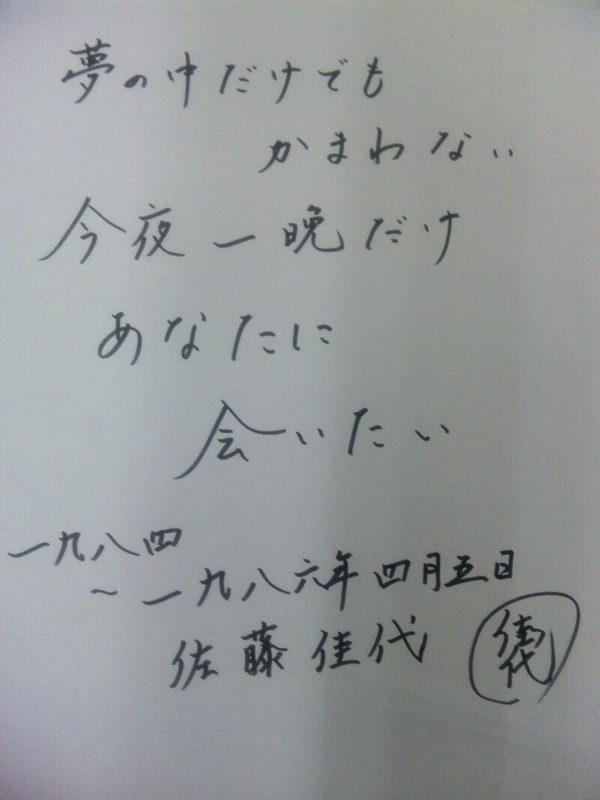 夢の中だけでも
かまわない
今夜一晩だけ
あなたに
会いたい
一九八四
～一九八六年四月五日
佐藤佳代 佳代